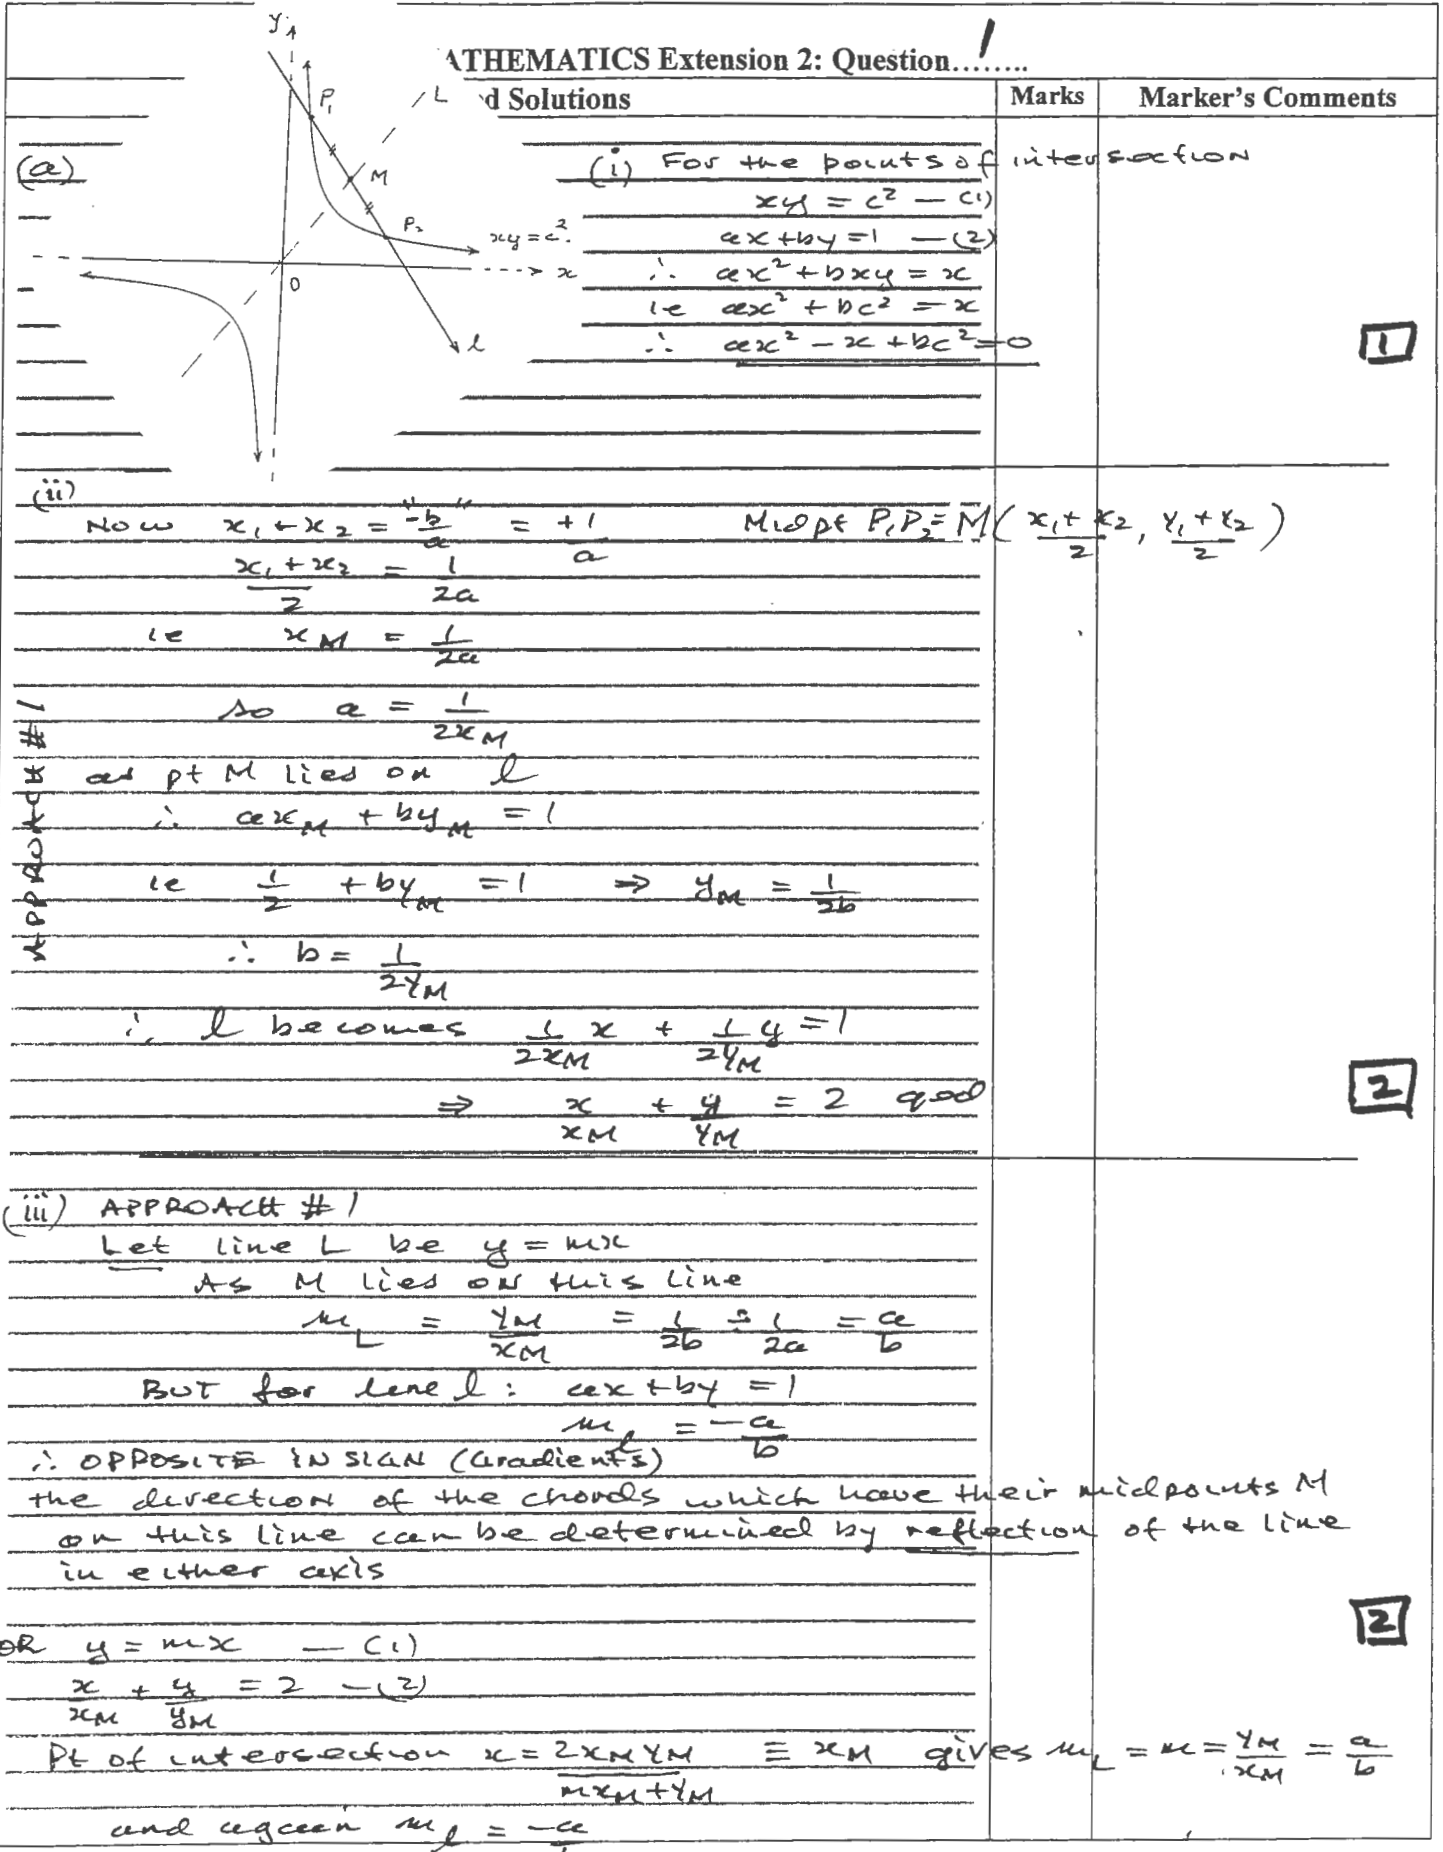 ATHEMATICS Extension 2: Question...1.....
d Solutions
Marks
Marker's Comments
(a)
y
P₁
L
M
P₂
xy = c².
x
O
l
(i) For the points of intersection
xy = c² — (1)
ax + by = 1 — (2)
∴ ax² + bxy = x
ie ax² + bc² = x
∴ ax² - x + bc² = 0
1
(ii)
Now x₁ + x₂ = "-b/a" = +1/a
Midpt P₁P₂ = M( (x₁ + x₂)/2, (y₁ + y₂)/2 )
(x₁ + x₂)/2 = 1/2a
ie x_M = 1/2a
APPROACH #1
so a = 1/2x_M
as pt M lies on l
∴ ax_M + by_M = 1
ie 1/2 + by_M = 1 ⇒ y_M = 1/2b
∴ b = 1/2y_M
∴ l becomes 1/2x_M x + 1/2y_M y = 1
⇒ x/x_M + y/y_M = 2 qed
2
(iii) APPROACH #1
Let line L be y = mx
As M lies on this line
m_L = y_M/x_M = 1/2b ÷ 1/2a = a/b
BUT for line l: ax + by = 1
m_l = -a/b
∴ OPPOSITE IN SIGN (Gradients)
the direction of the chords which have their midpoints M
on this line can be determined by reflection of the line
in either axis
2
OR y = mx — (1)
x/x_M + y/y_M = 2 — (2)
Pt of intersection x = 2x_M y_M/(mx_M + y_M) ≡ x_M gives m_L = m = y_M/x_M = a/b
and again m_l = -a